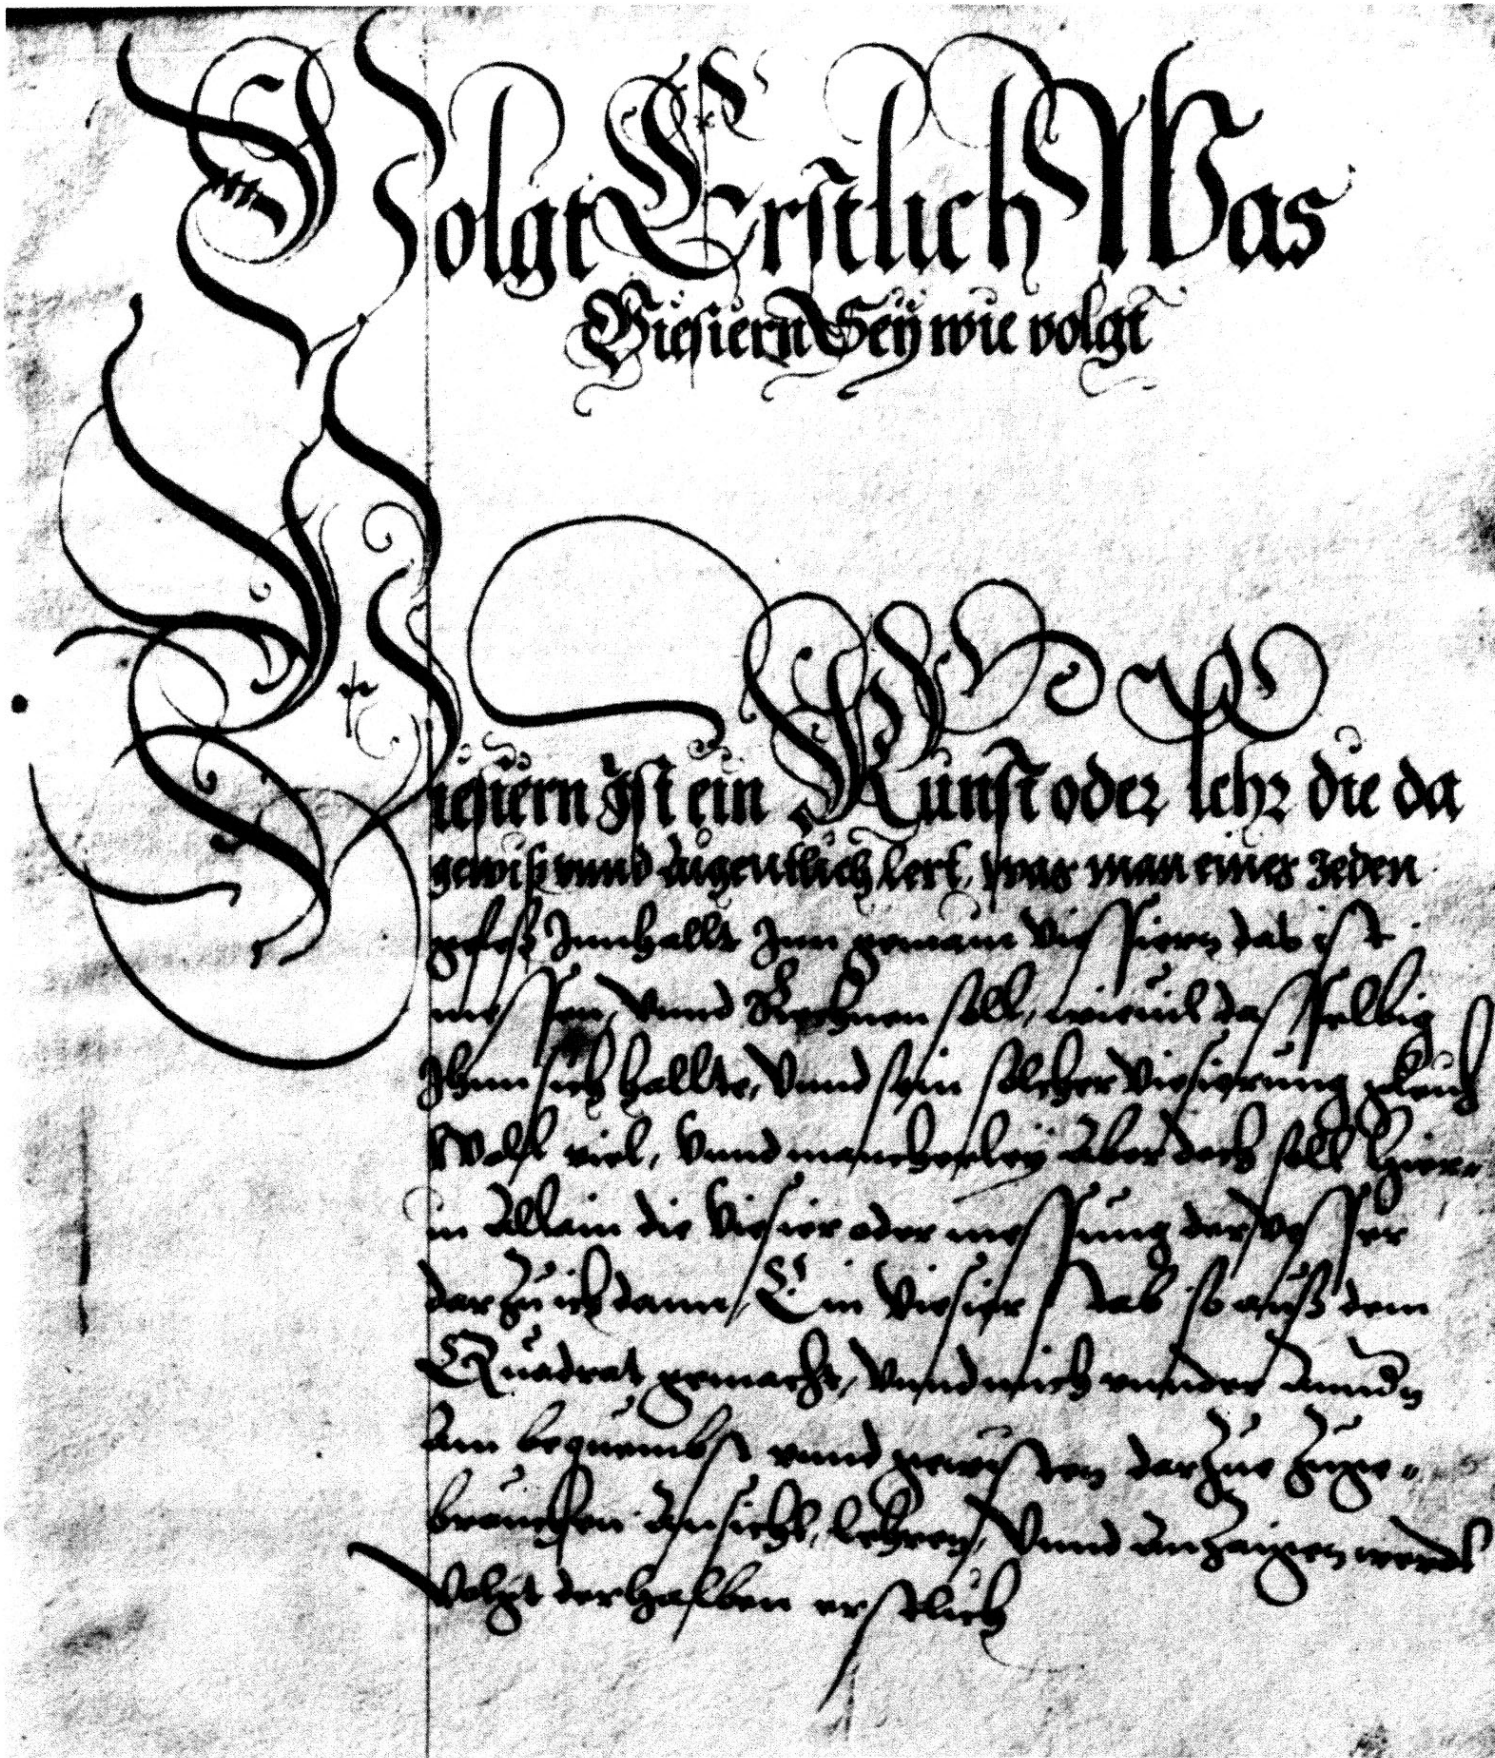 Volgt Erstlich Was
Viesiern Sey wie volgt
Viesiern Ist ein Kunst oder lehr die da
gewiß vnnd augentlich lert, was man eines Jeden
gefeß Innhallt Inn gemain viessiern das ist
messen, vnnd Rechnen soll, wieuil dasselbig
Inn sich hallte, Vnnd sein solcher viesierung gleich
Woll viel, Vnnd mancherley Aber doch soll hier-
in Allain die Viesier oder messung der vesser
darzu ich dann, Ein Viesier stab so auß dem
Quadrat gemacht, Vnnd mich vnnder
Am bequembst vnnd gewisten darzue zuge-
brauchen Ansicht, lehren, Vnnd Anzaigen werdt
Volgt derhalben erstlich